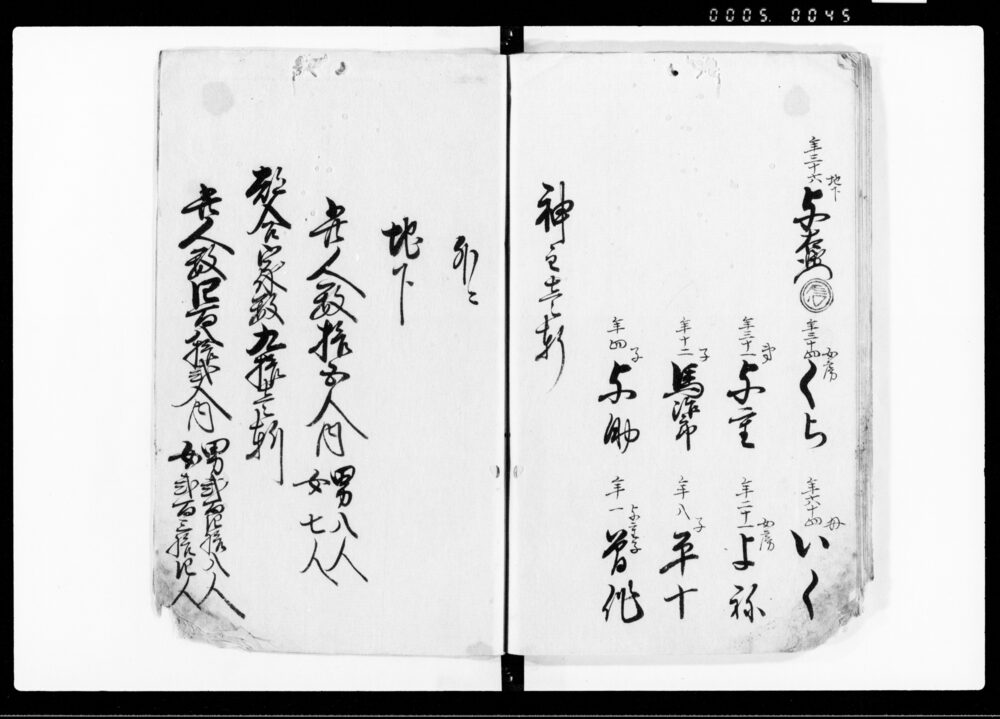 0005 0045
年三十六 地下 与
年三十四 女房 くら
年六十四 母 いく
年三十一 弟 与重
年二十一 女房 よ祢
年十二 子 馬治郎
年八 子 平十
年四 子 与助
年一 与重子 曽作
神主壱軒
外ニ
地下
此人数拾五人内 男八人
女七人
都合家数九拾壱軒
此人数四百八拾弐人内 男弐百四拾八人
女弐百三拾四人